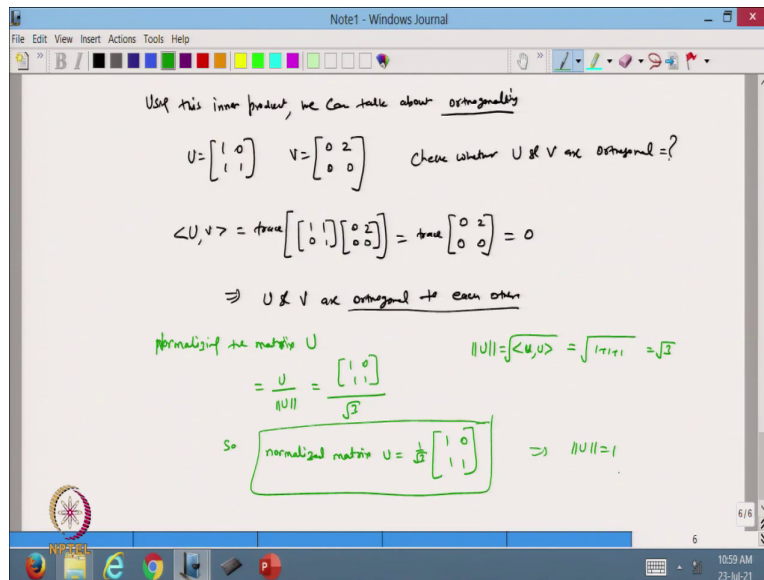 Note1 - Windows Journal
File Edit View Insert Actions Tools Help
Using this inner product, we can talk about orthogonality
U = [1 0; 1 1] V = [0 2; 0 0] Check whether U & V are orthogonal = ?
<U, V> = trace[[1 1; 0 1][0 2; 0 0]] = trace[0 2; 0 0] = 0
⇒ U & V are orthogonal to each other
Normalizing the matrix U
||U|| = √<U,U> = √1+1+1 = √3
= U/||U|| = [1 0; 1 1]/√3
So normalized matrix U = 1/√3 [1 0; 1 1] ⇒ ||U|| = 1
6/6
6
NPTEL
10:59 AM
23-Jul-21